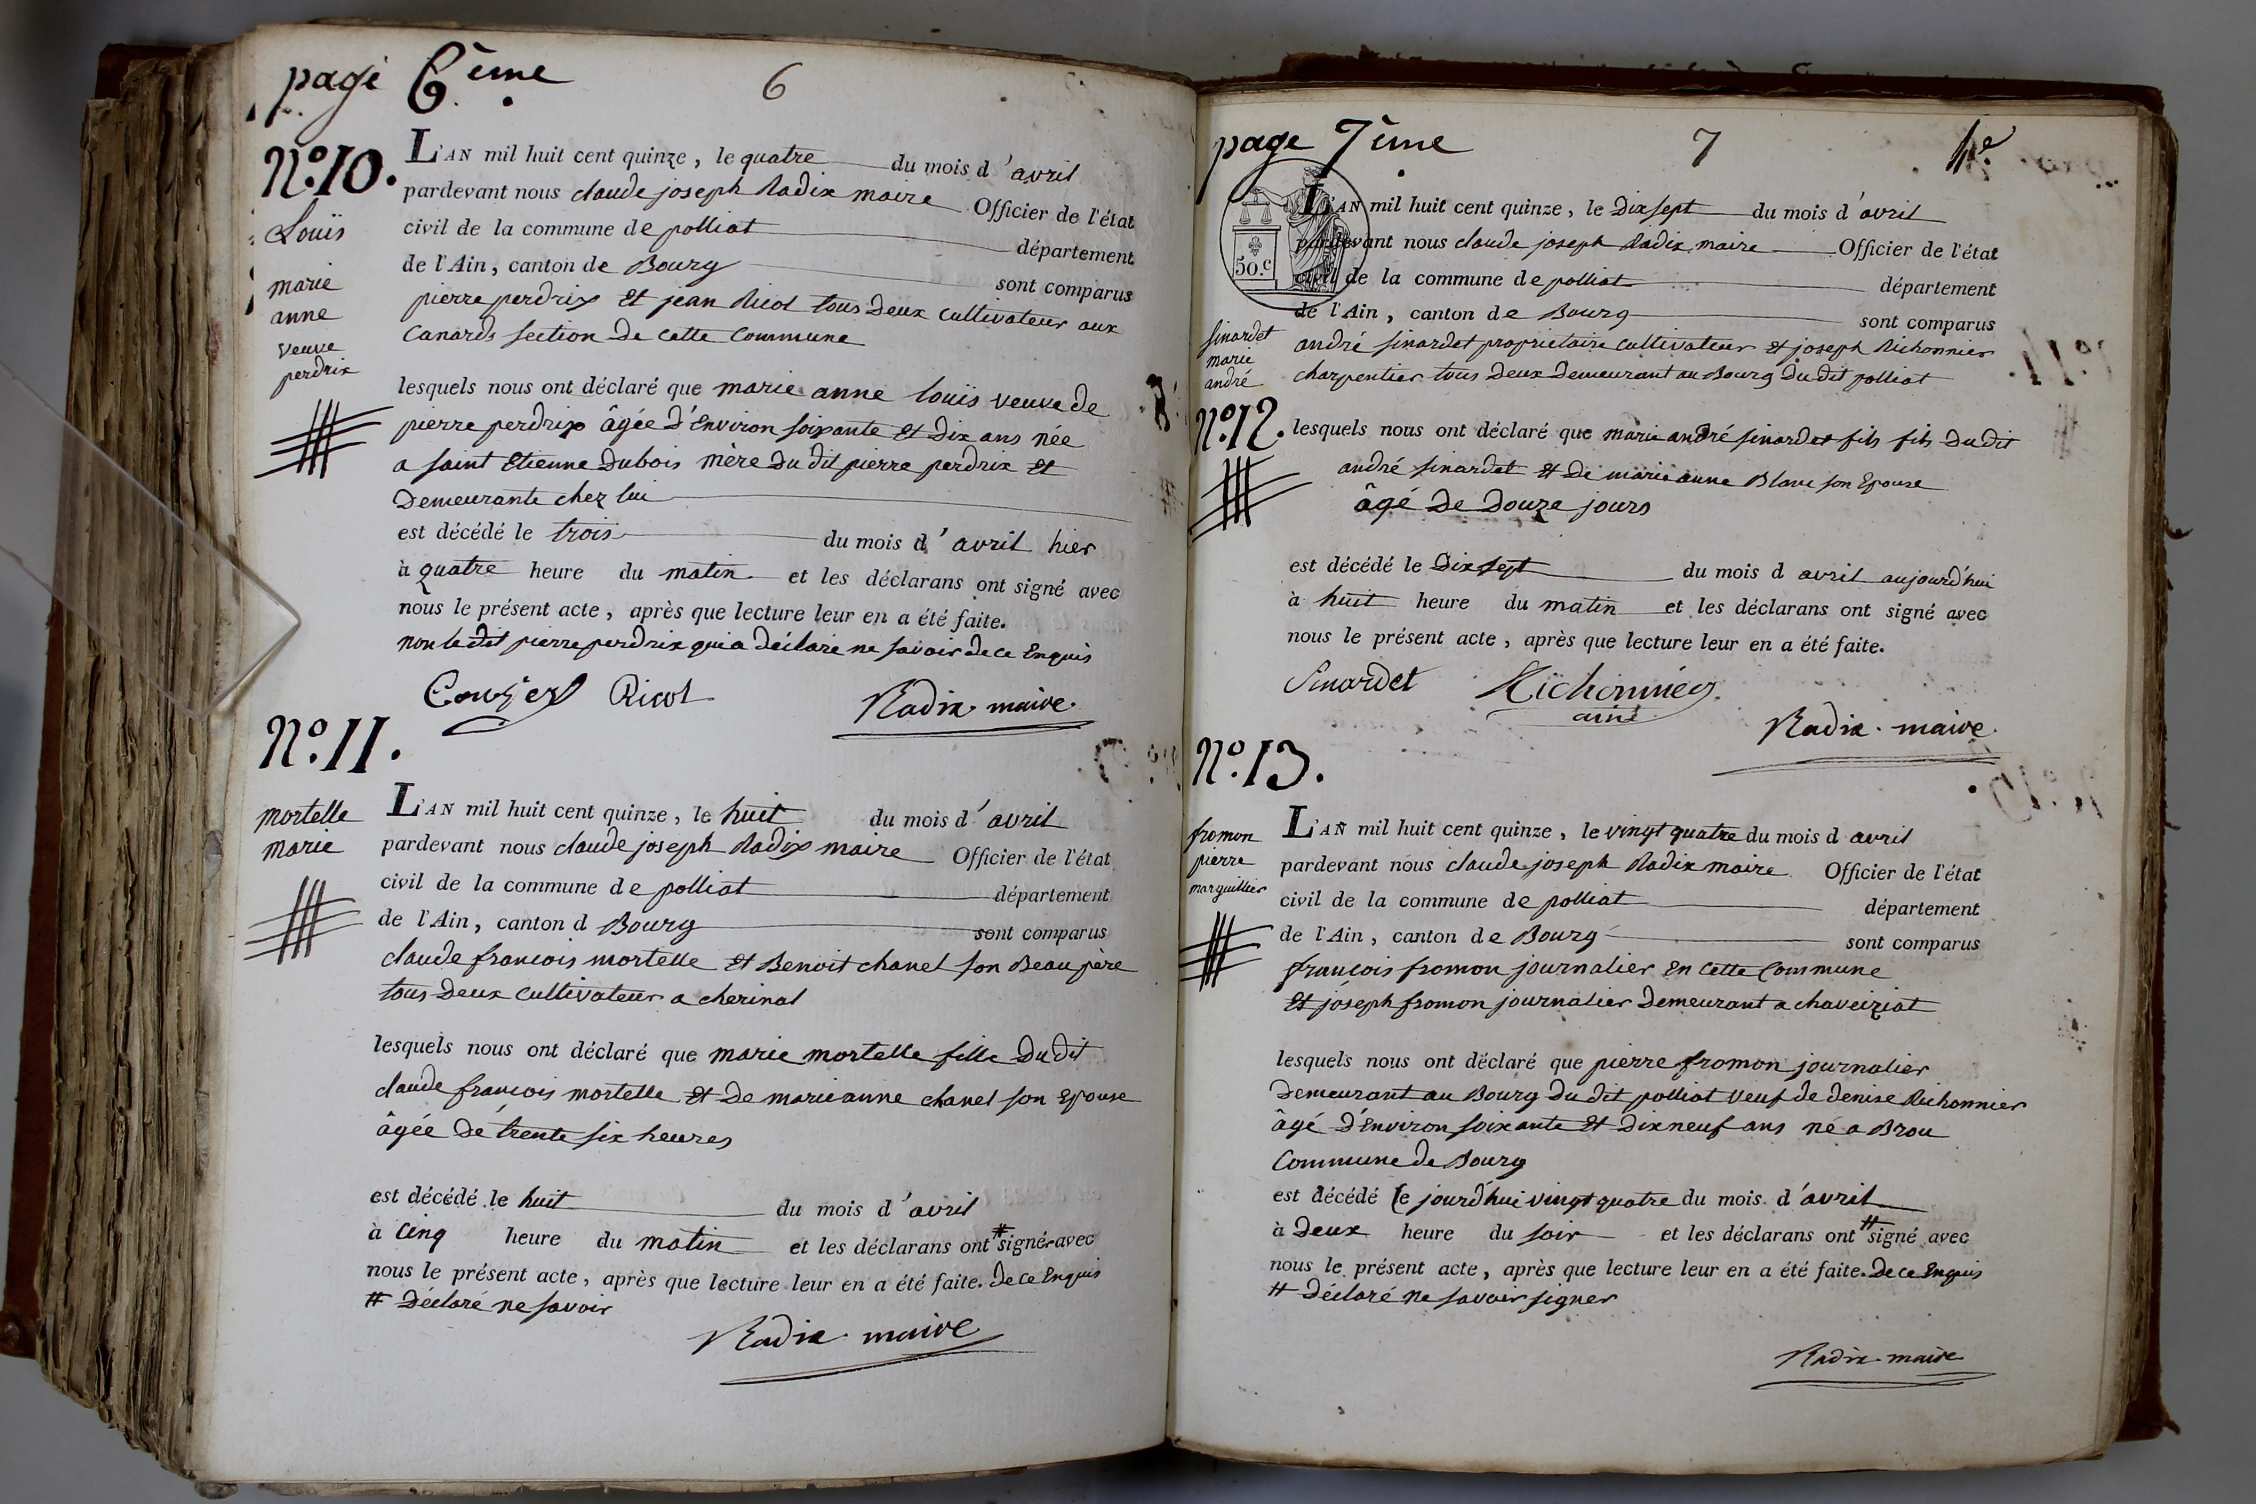 page 6ème 6
N.o 10.
Louïs
marie
anne
veuve
perdrix
L'AN mil huit cent quinze, le quatre du mois d'avril
pardevant nous claude joseph Radix maire Officier de l'état
civil de la commune de polliat département
de l'Ain, canton de Bourg sont comparus
pierre perdrix et jean Ricol tous deux cultivateur aux
canards section de cette commune
lesquels nous ont déclaré que marie anne louïs veuve de
pierre perdrix âgée d'Environ soixante et dix ans née
a saint Etienne Dubois mère du dit pierre perdrix et
demeurante chez lui
est décédé le trois du mois d'avril hier
à quatre heure du matin et les déclarans ont signé avec
nous le présent acte, après que lecture leur en a été faite.
non le dit pierre perdrix qui a déclaré ne savoir de ce Enquis
Ricol Radix maire
N.o 11.
mortelle
marie
L'AN mil huit cent quinze, le huit du mois d'avril
pardevant nous claude joseph Radix maire Officier de l'état
civil de la commune de polliat département
de l'Ain, canton d Bourg sont comparus
claude francois mortelle et Benoit chanel son Beau père
tous deux cultivateur a cherinal
lesquels nous ont déclaré que marie mortelle fille du dit
claude francois mortelle et de marie anne chanel son Epouse
âgée de trente six heures
est décédé le huit du mois d'avril
à cinq heure du matin et les déclarans ont # signé avec
nous le présent acte, après que lecture leur en a été faite. de ce Enquis
# déclaré ne savoir
Radix maire
page 7ème 7
50.c
sinardet
marie
andré
N.o 12.
L'AN mil huit cent quinze, le dix sept du mois d'avril
pardevant nous claude joseph Radix maire Officier de l'état
civil de la commune de polliat département
de l'Ain, canton de Bourg sont comparus
andré sinardet propriétaire cultivateur et joseph Richonnier
charpentier tous deux demeurant au Bourg du dit polliat
lesquels nous ont déclaré que marie andré sinardet fils fils du dit
andré sinardet et de marie anne Blanc son Epouse
âgé de douze jours
est décédé le dix sept du mois d avril aujourd'hui
à huit heure du matin et les déclarans ont signé avec
nous le présent acte, après que lecture leur en a été faite.
Sinardet Richonnier
ainé
Radix maire
N.o 13.
fromon
pierre
marguillier
L'AN mil huit cent quinze, le vingt quatre du mois d avril
pardevant nous claude joseph Radix maire Officier de l'état
civil de la commune de polliat département
de l'Ain, canton de Bourg sont comparus
françois fromon journalier en cette commune
et joseph fromon journalier demeurant a chaveiziat
lesquels nous ont déclaré que pierre fromon journalier
demeurant au Bourg du dit polliat veuf de denise Richonnier
âgé d'Environ soixante et dix neuf ans né a Brou
commune de Bourg
est décédé le jourd'hui vingt quatre du mois d'avril
à deux heure du soir et les déclarans ont # signé avec
nous le présent acte, après que lecture leur en a été faite. de ce Enquis
# déclaré ne savoir signer
Radix maire